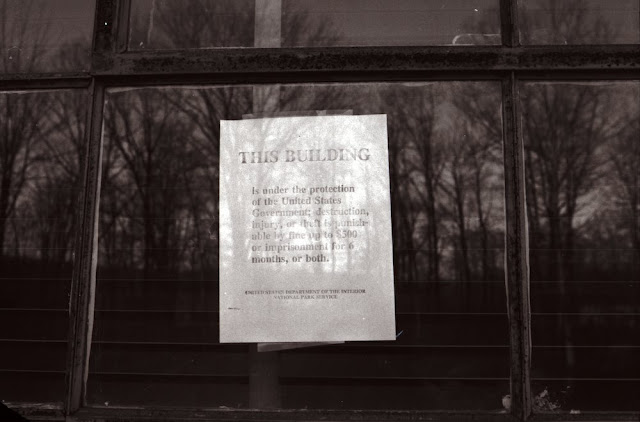 THIS BUILDING
is under the protection
of the United States
Government; destruction,
injury, or theft is punish-
able by fine up to $500
or imprisonment for 6
months, or both.
UNITED STATES DEPARTMENT OF THE INTERIOR
NATIONAL PARK SERVICE